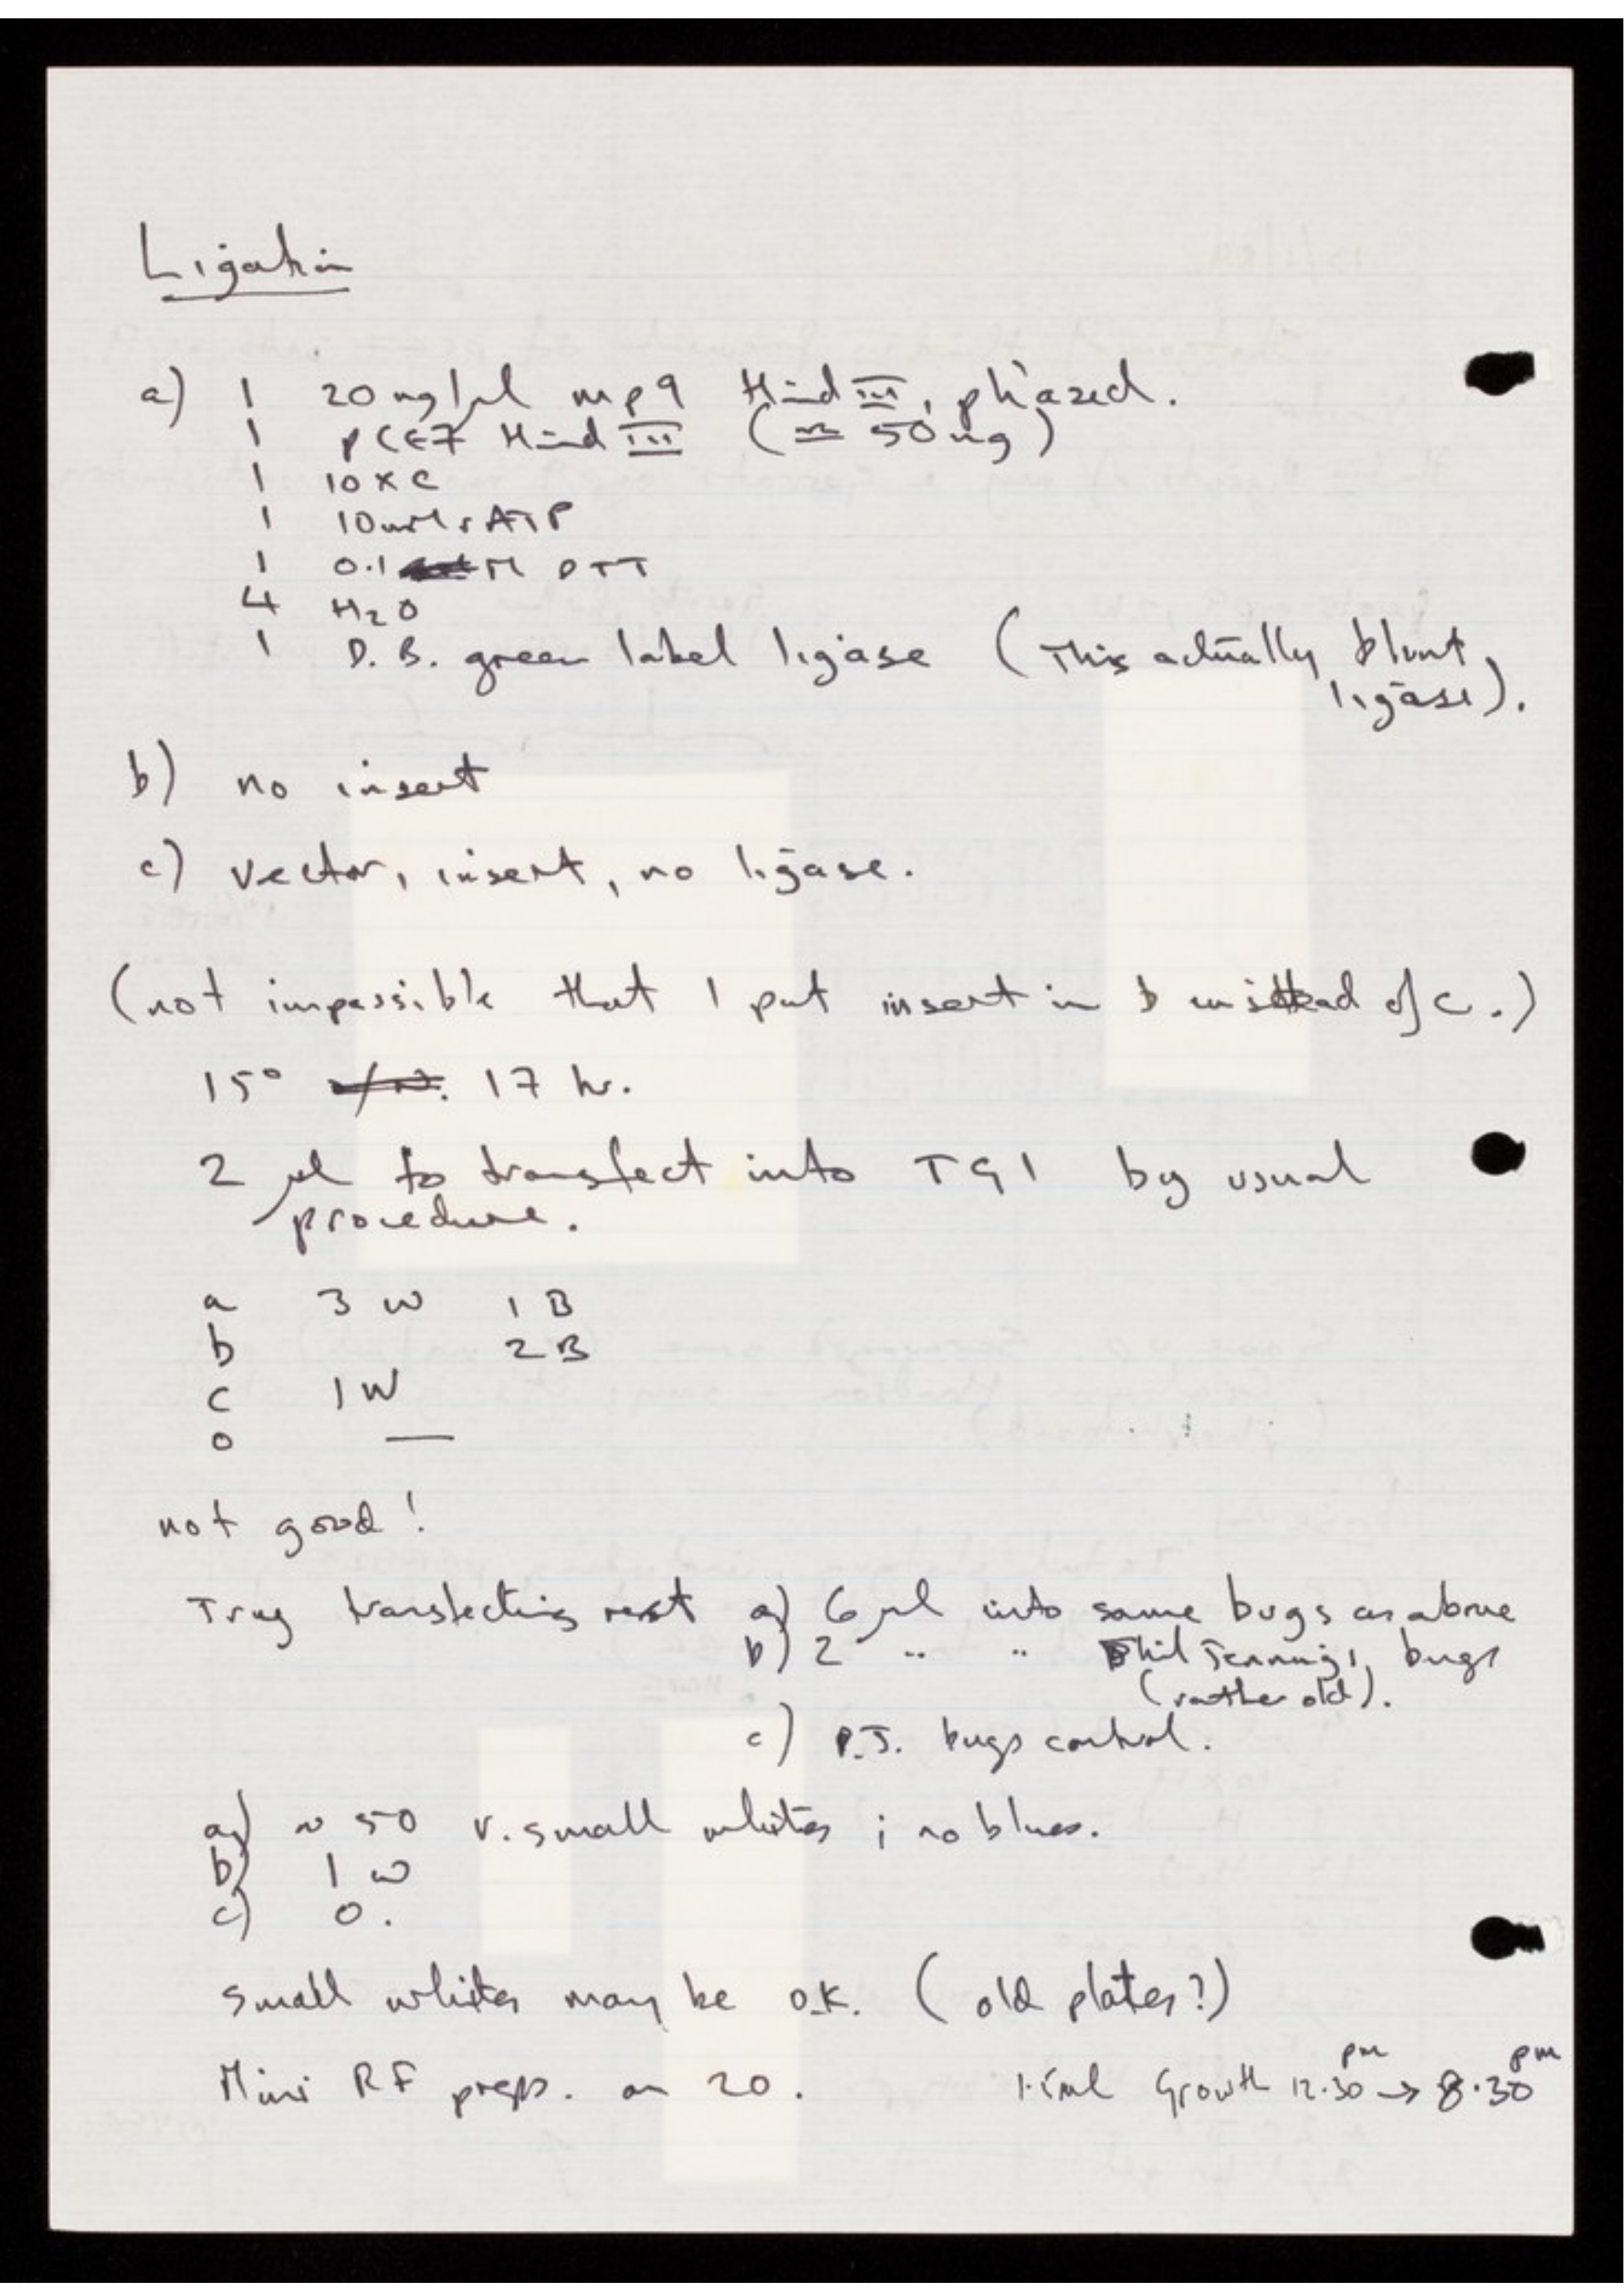 Ligation
a) 1 20ng/μl mp9 Hind III, phàzed.
1 pCE7 Hind III (≈ 50ng)
1 10 x C
1 10mM rATP
1 0.1 M DTT
4 H2O
1 D.B. green label ligase (This actually blunt
ligase).
b) no insert
c) vector, insert, no ligase.
(not impossible that I put insert in b instead of c.)
15° 17 hr.
2 μl to transfect into TG1 by usual
procedure.
a 3 W 1 B
b 2 B
c 1 W
0 —
not good!
Try transfecting rest a) 6 μl into same bugs as above
b) 2 " " Phil Jennings, bugs
(rather old).
c) P.J. bugs control.
a) ~ 50 v. small whites ; no blues.
b) 1 W
c) 0.
Small whites may be O.K. (old plates?)
Mini RF preps. on 20. 1.5ml Growth 12.30 pm → 8.30 pm